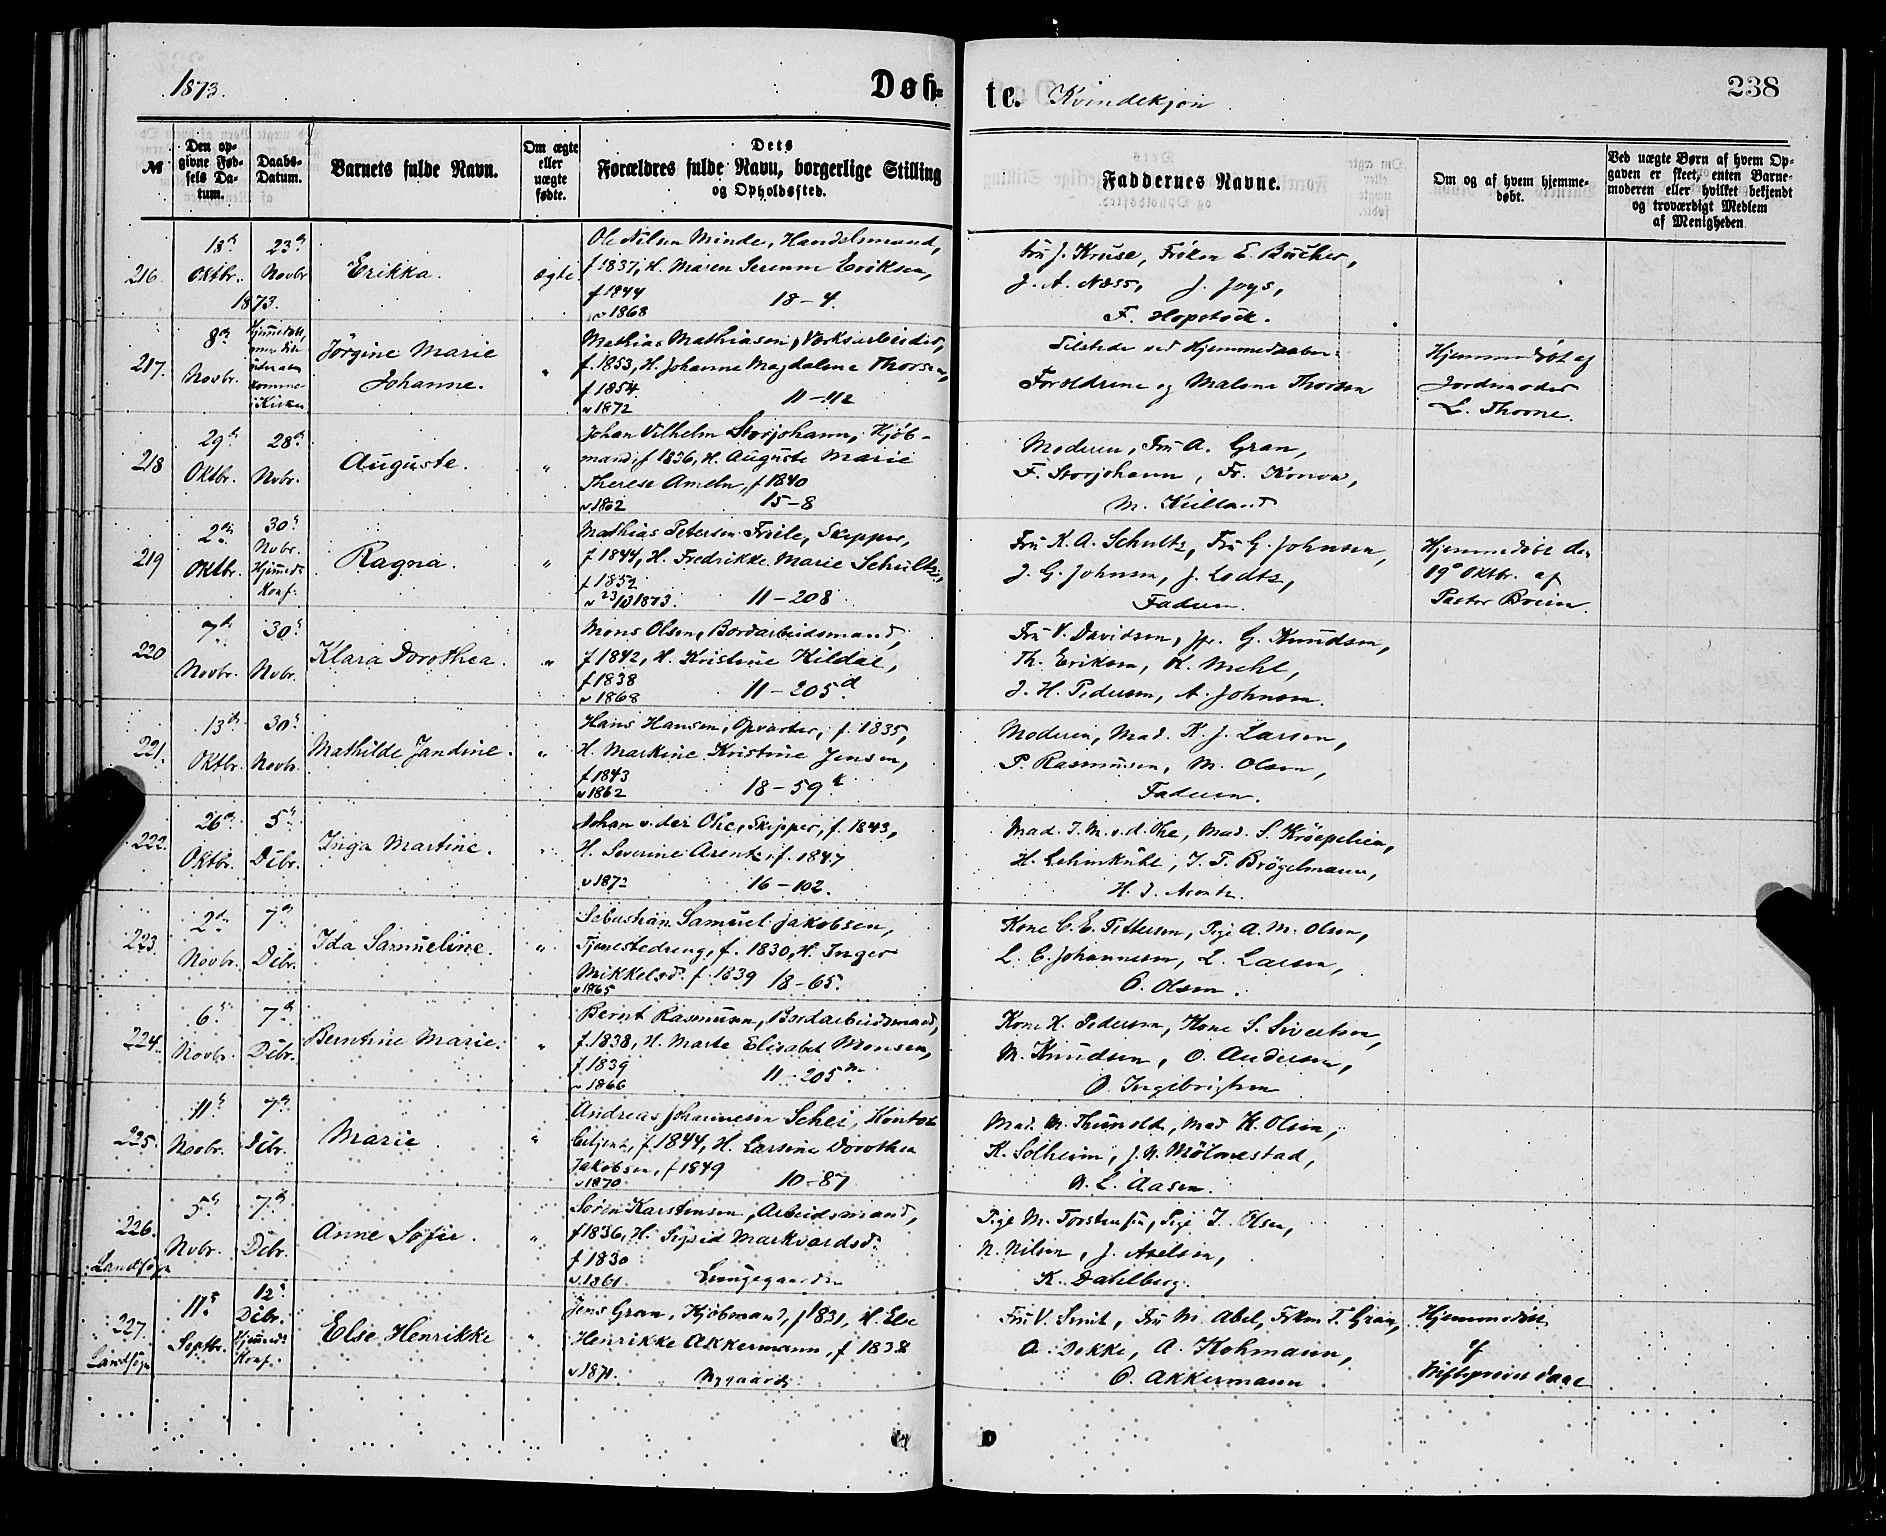 1873.
Døb-
te. Kvindekjøn
238
№
Den opgivne Fødsels Datum.
Daabs-Datum.
Barnets fulde Navn.
Om ægte eller uægte fødte.
Dets Forældres fulde Navn, borgerlige Stilling og Opholdssted.
Faddernes Navne.
Om og af hvem hjemmedøbt.
Ved uægte Børn af hvem Opgaven er skeet, enten Barnemoderen eller hvilket bekjendt og troværdigt Medlem af Menigheden
216. 18de Oktbr. 1873. 23de Novbr Erikka. ægte
Ole Nilsen Minde, Handelsmand,
f 1837, H. Maren Serene Eriksen,
f 1844
v 1868 18-4.
Fru J. Kruse, Frøken E. Bücher,
J. A. Næss, J. Joys,
F. Hopstock.
217. 8de Novbr. Jørgine Marie Johanne. "
Mathias Mathiasen, Værksarbeider,
f. 1853, H. Johanne Magdalena Thorsen,
f 1854.
v 1872 11-112
Tilstede ved Hjemmedaaben:
Forældrene og Malene Thorsen
Hjemmedøbt af
Jordmoder
L. Thorne.
218 29de Oktbr. 28de Novbr. Auguste. "
Johan Vilhelm Storjohann, Kjøb-
mand, f 1836, H. Auguste Marie
Therese Ameln, f 1840
v 1862 15-8
Moderen, Fru A. Gran,
F. Storjohann, Fr. Konow,
M. Kielland
219 2den Oktbr. 30te Nvbr. Hjemmed: Konf: Ragna. "
Mathias Petersen Friele, Skipper,
f 1844, H. Fredrikke Marie Schultz,
f 1852
v 23/3 1873. 11-208
Fru K. A. Schultz, Fru G. Johnsen,
J. G. Johnsen, J. Lodtz,
Faderen.
Hjemmedøbt den
19de Oktbr. af
Pastor Brun.
220 7de Novbr. 30te Nvbr. Klara Dorothea. "
Mons Olsen, Bordarbeidsmand,
f 1842, H. Kristine Kildal,
f 1838
v 1868 11-205d
Fru V. Davidsen, G. Knudsen,
Th. Eriksen, K. Mehl,
J. H. Pedersen, A. Johnsen.
221. 13de Oktbr. 30te Novbr. Mathilde Jandine. "
Hans Hansen, Opvarter, f. 1835,
H. Markine Kristine Jensen,
f 1843
v 1862 18-59k
Moderen, Mad. K. J. Larsen,
P. Rasmussen, M. Olsen,
Faderen.
222. 26de Oktbr. 5te Dcbr. Inga Martine. "
Johan v. der Ohe, Skipper, f. 1843,
H. Severine Arentz, f. 1847
v 1872 16-102.
Mad. J. M. v. d. Ohe, Mad. S. Krøepelien,
H. Lehmkuhl, J. T. Brøgelmann,
H. J. Arentz.
223. 2den Novbr. 7de Dcbr. Ida Samueline. "
Sebastian Samuel Jakobsen,
Tjenestedreng, f. 1830, H. Inger
Mikkelsd. f. 1839 18-65.
v 1865
Kone C. E. Pettersen, Pige A. M. Olsen,
L. C. Johannesen, L. Larsen,
O. Olsen.
224. 6te Novbr. 7de Dcbr. Berntine Marie. "
Bernt Rasmussen, Bordarbeidsmand,
f. 1838, H. Marte Elisabet Monsen,
f 1839
v 1866 11-205m
Kone H. Pedersen, Kone S. Sivertsen,
M. Knudsen, O. Andersen,
O. Ingebrigtsen
225. 11te Novbr. 7de Dcbr. Marie. "
Andreas Johannesen Schei, Kontor
betjent, f 1844, H. Larsine Dorothea
Jakobsen, f 1849
v 1870 10-87
Mad. M. Thunold, Mad K. Olsen,
K. Solheim, J. N. Mølmestad,
N. L. Aasen.
226. Landsogn 5te Nvbr. 7de Dcbr. Anne Sofie. "
Søren Karstensen, Arbeidsmand,
f 1836, H. Sigrid Markvardsd.
f 1830
v 1861. Lungegaarden
Pige M. Torstensen, Pige J. Olsen,
N. Nilsen, J. Axelsen,
K. Dahlberg.
227. Landsogn 11te Septbr. 12te Dcbr. Hjemmed: Konf: Else Henrikke "
Jens Gran, Kjøbmand, f 1831, H. Else
Henrikke Akkermann, f 1838
v 1871. Nygaard
Fru V. Smit, Fru M. Abel, Frken T. Gran,
O. Dekke, A. Kohmann,
O. Akkermann
Hjemmedøbt
af
Stiftsprovst Daae